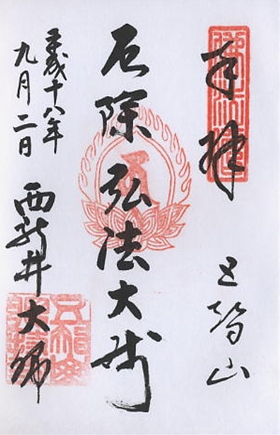 奉拝
五智山
厄除弘法大師
平成十八年
九月二日
西新井大師